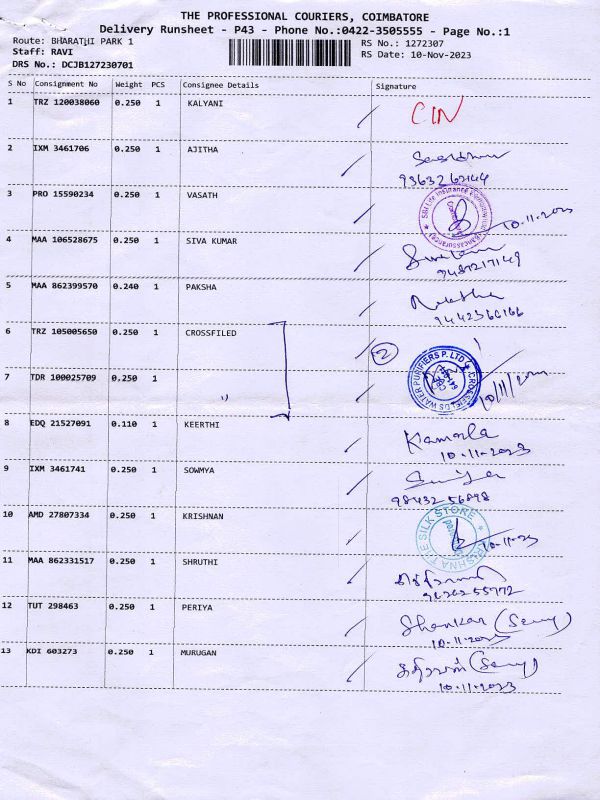 THE PROFESSIONAL COURIERS, COIMBATORE
Delivery Runsheet - P43 - Phone No.:0422-3505555 - Page No.:1
Route: BHARATHI PARK 1
RS No.: 1272307
Staff: RAVI
RS Date: 10-Nov-2023
DRS No.: DCJB127230701
S No Consignment No Weight PCS Consignee Details Signature
1 TRZ 120038060 0.250 1 KALYANI CIN
2 IXM 3461706 0.250 1 AJITHA
9363262144
3 PRO 15590234 0.250 1 VASATH
SBI Life Insurance Company Ltd
10.11.2023
4 MAA 106528675 0.250 1 SIVA KUMAR
9487217149
5 MAA 862399570 0.240 1 PAKSHA
9442366166
6 TRZ 105005650 0.250 1 CROSSFILED 2
CROSSFIELDS WATER PURIFIERS P. LTD
7 TDR 100025709 0.250 1 "
10/11/2023
8 EDQ 21527091 0.110 1 KEERTHI Kamala
10-11-2023
9 IXM 3461741 0.250 1 SOWMYA
98432 56898
10 AMD 27807334 0.250 1 KRISHNAN
KRISHNA THE SILK STORE
10-11-23
11 MAA 862331517 0.250 1 SHRUTHI
12 TUT 298463 0.250 1 PERIYA Shankar (Secy)
10.11.2023
13 KDI 603273 0.250 1 MURUGAN கதிரவன் (Secy)
10-11-2023